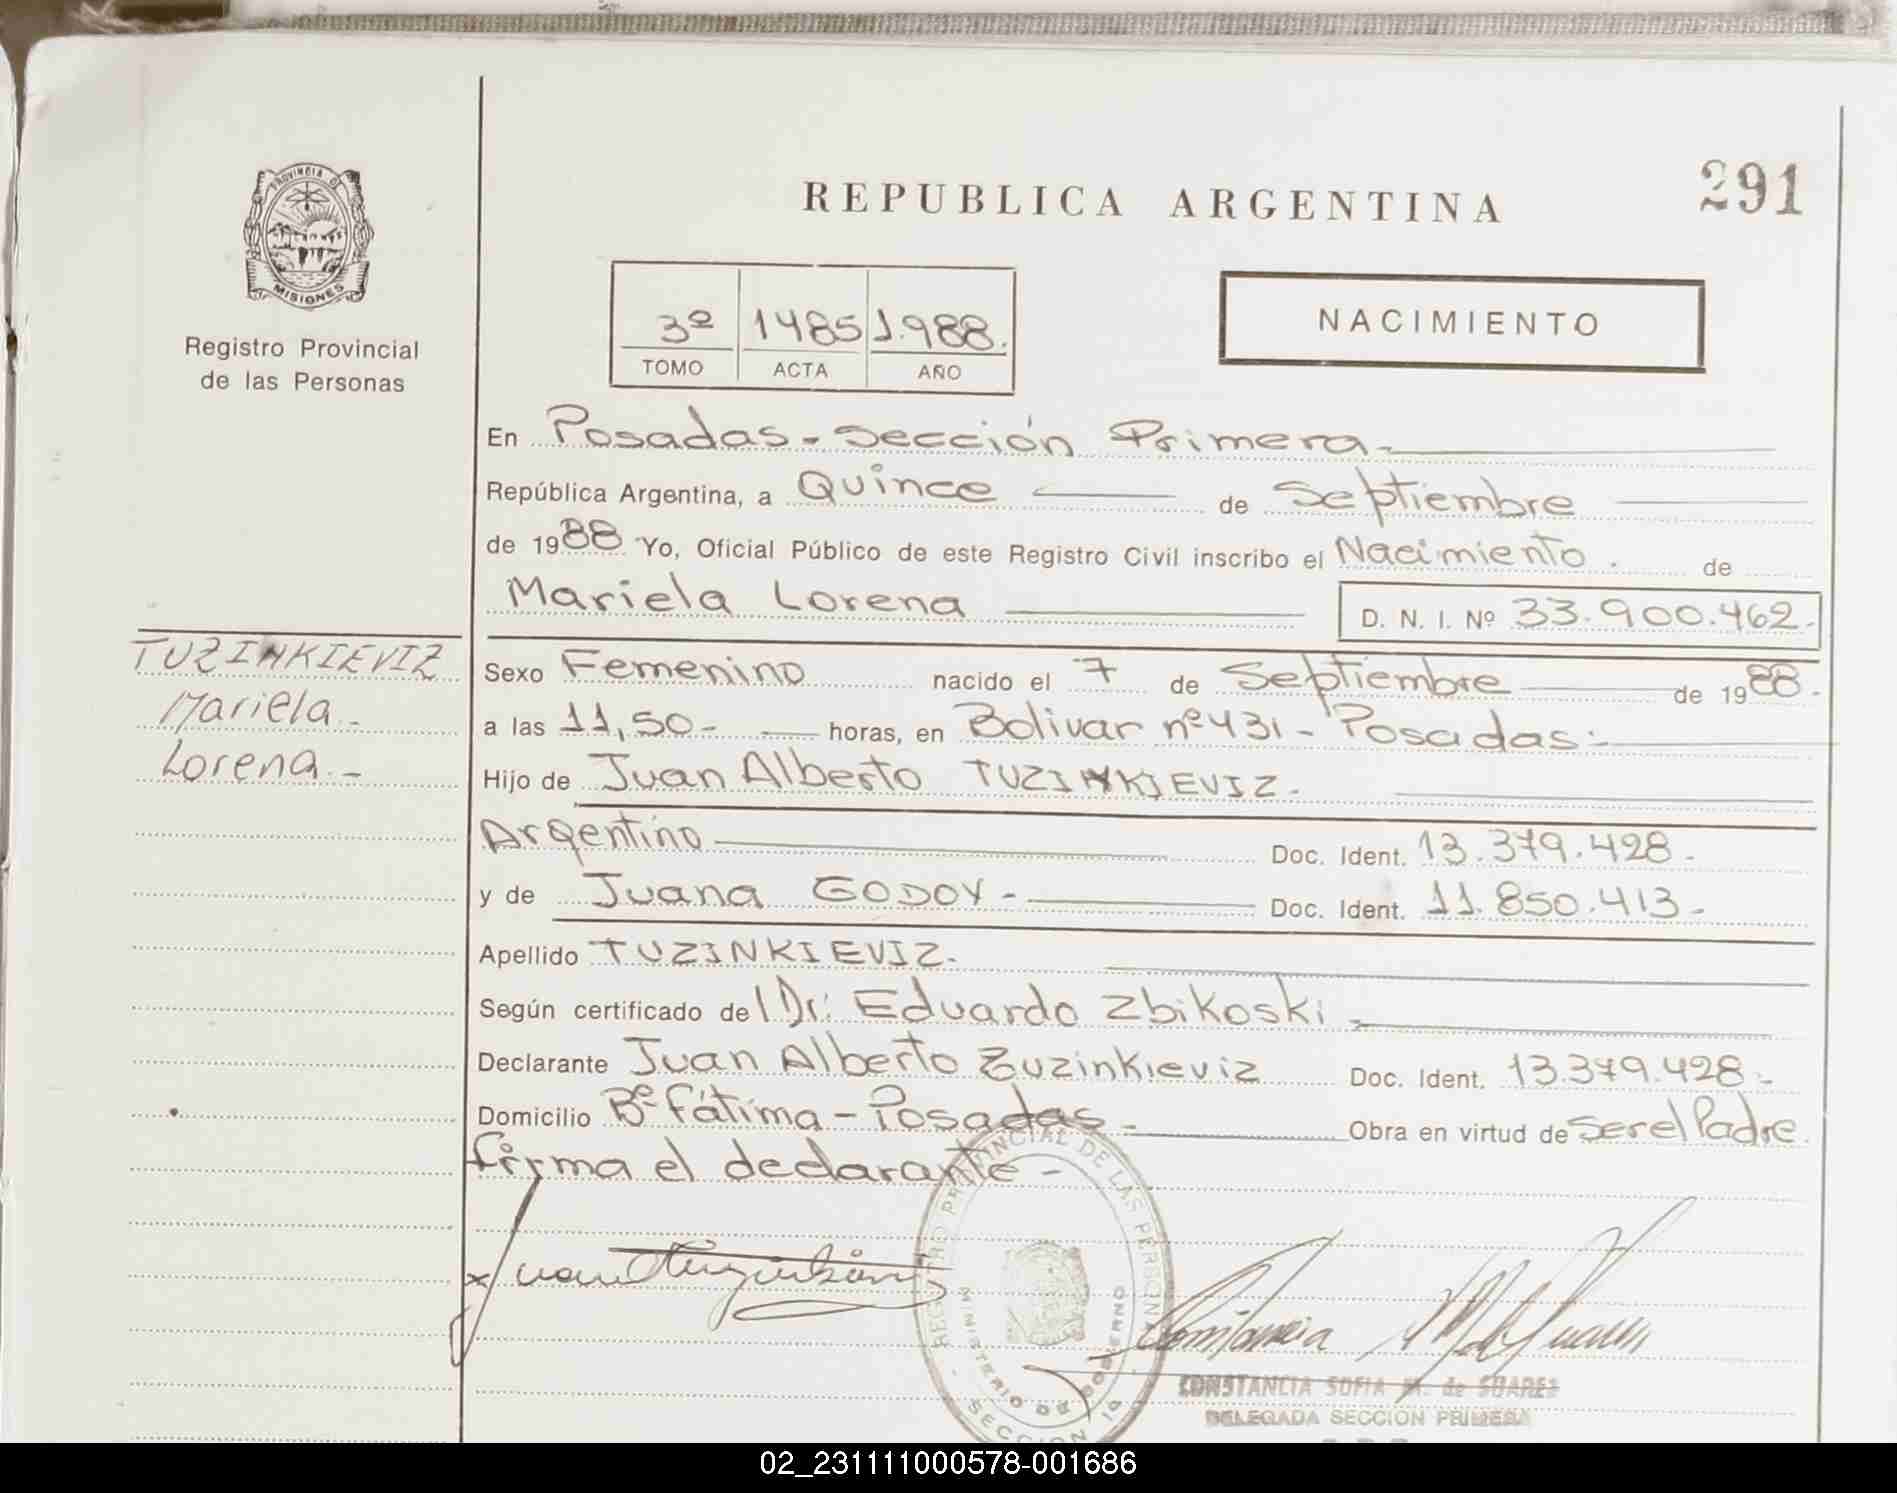 291
REPUBLICA ARGENTINA
PROVINCIA DE
MISIONES
Registro Provincial
de las Personas
3º 1485 1.988.
TOMO ACTA AÑO
NACIMIENTO
En Posadas - Sección Primera -
República Argentina, a Quince de Septiembre
de 1988 Yo, Oficial Público de este Registro Civil inscribo el Nacimiento. de
Mariela Lorena D. N. I. Nº 33.900.462-
TUZINKIEVIZ
Mariela -
Lorena. -
Sexo Femenino nacido el 7 de Septiembre de 1988.
a las 11,50- horas, en Bolivar nº 431 - Posadas -
Hijo de Juan Alberto TUZINKIEVIZ.
Argentino Doc. Ident. 13.379.428.
y de Juana GODOY - Doc. Ident. 11.850.413-
Apellido TUZINKIEVIZ.
Según certificado del Dr. Eduardo Zbikoski -
Declarante Juan Alberto Zuzinkieviz Doc. Ident. 13.379.428-
Domicilio Bº Fátima - Posadas - Obra en virtud de Ser el Padre.
firma el declarante -
REGISTRO PROVINCIAL DE LAS PERSONAS
MINISTERIO DE GOBIERNO
SECCION 1ª
CONSTANCIA SOFIA M. de SUAREZ
DELEGADA SECCION PRIMERA
02_231111000578-001686